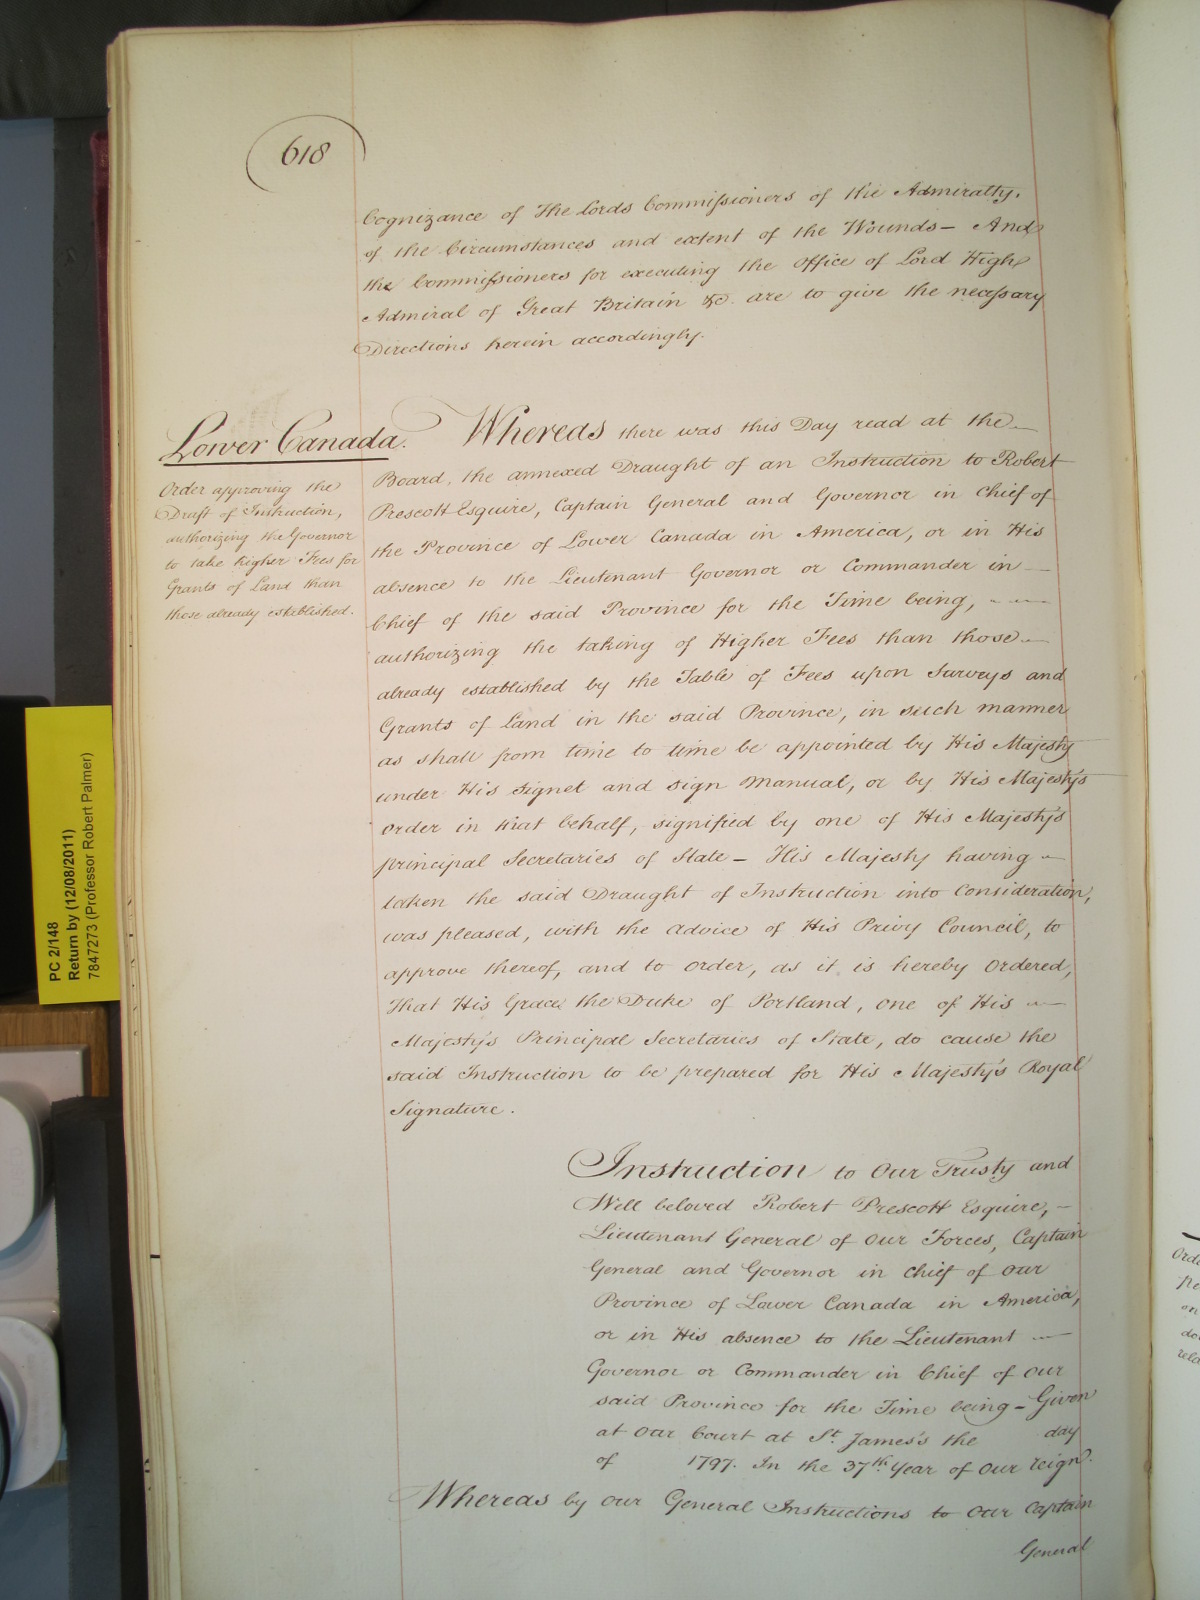 618
Cognizance of The Lords Commissioners of the Admiralty.
of the Circumstances and extent of the Wounds – And
the Commissioners for executing the Office of Lord High
Admiral of Great Britain &c. are to give the necessary
Directions herein accordingly.
Lower Canada.
Order approving the
Draft of Instruction,
authorizing the Governor
to take higher Fees for
Grants of Land than
those already established.
Whereas there was this Day read at the
Board, the annexed Draught of an Instruction to Robert
Prescott Esquire, Captain General and Governor in Chief of
the Province of Lower Canada in America, or in His
absence to the Lieutenant Governor or Commander in
Chief of the said Province for the Time being,
authorizing the taking of Higher Fees than those
already established by the Table of Fees upon Surveys and
Grants of Land in the said Province, in such manner
as shall from time to time be appointed by His Majesty
under His Signet and Sign Manual, or by His Majesty's
Order in that behalf, signified by one of His Majesty's
principal Secretaries of State – His Majesty having
taken the said Draught of Instruction into Consideration,
was pleased, with the Advice of His Privy Council, to
approve thereof, and to order, as it is hereby Ordered,
That His Grace the Duke of Portland, one of His
Majesty's Principal Secretaries of State, do cause the
said Instruction to be prepared for His Majesty's Royal
Signature.
Instruction to Our Trusty and
Well beloved Robert Prescott Esquire, –
Lieutenant General of Our Forces, Captain
General and Governor in Chief of Our
Province of Lower Canada in America,
or in His absence to the Lieutenant
Governor or Commander in Chief of Our
said Province for the Time being – Given
at Our Court at St. James's the day
of 1797. In the 37th Year of Our reign.
Whereas by our General Instructions to Our Captain
General
PC 2/148
Return by (12/08/2011)
7847273 (Professor Robert Palmer)